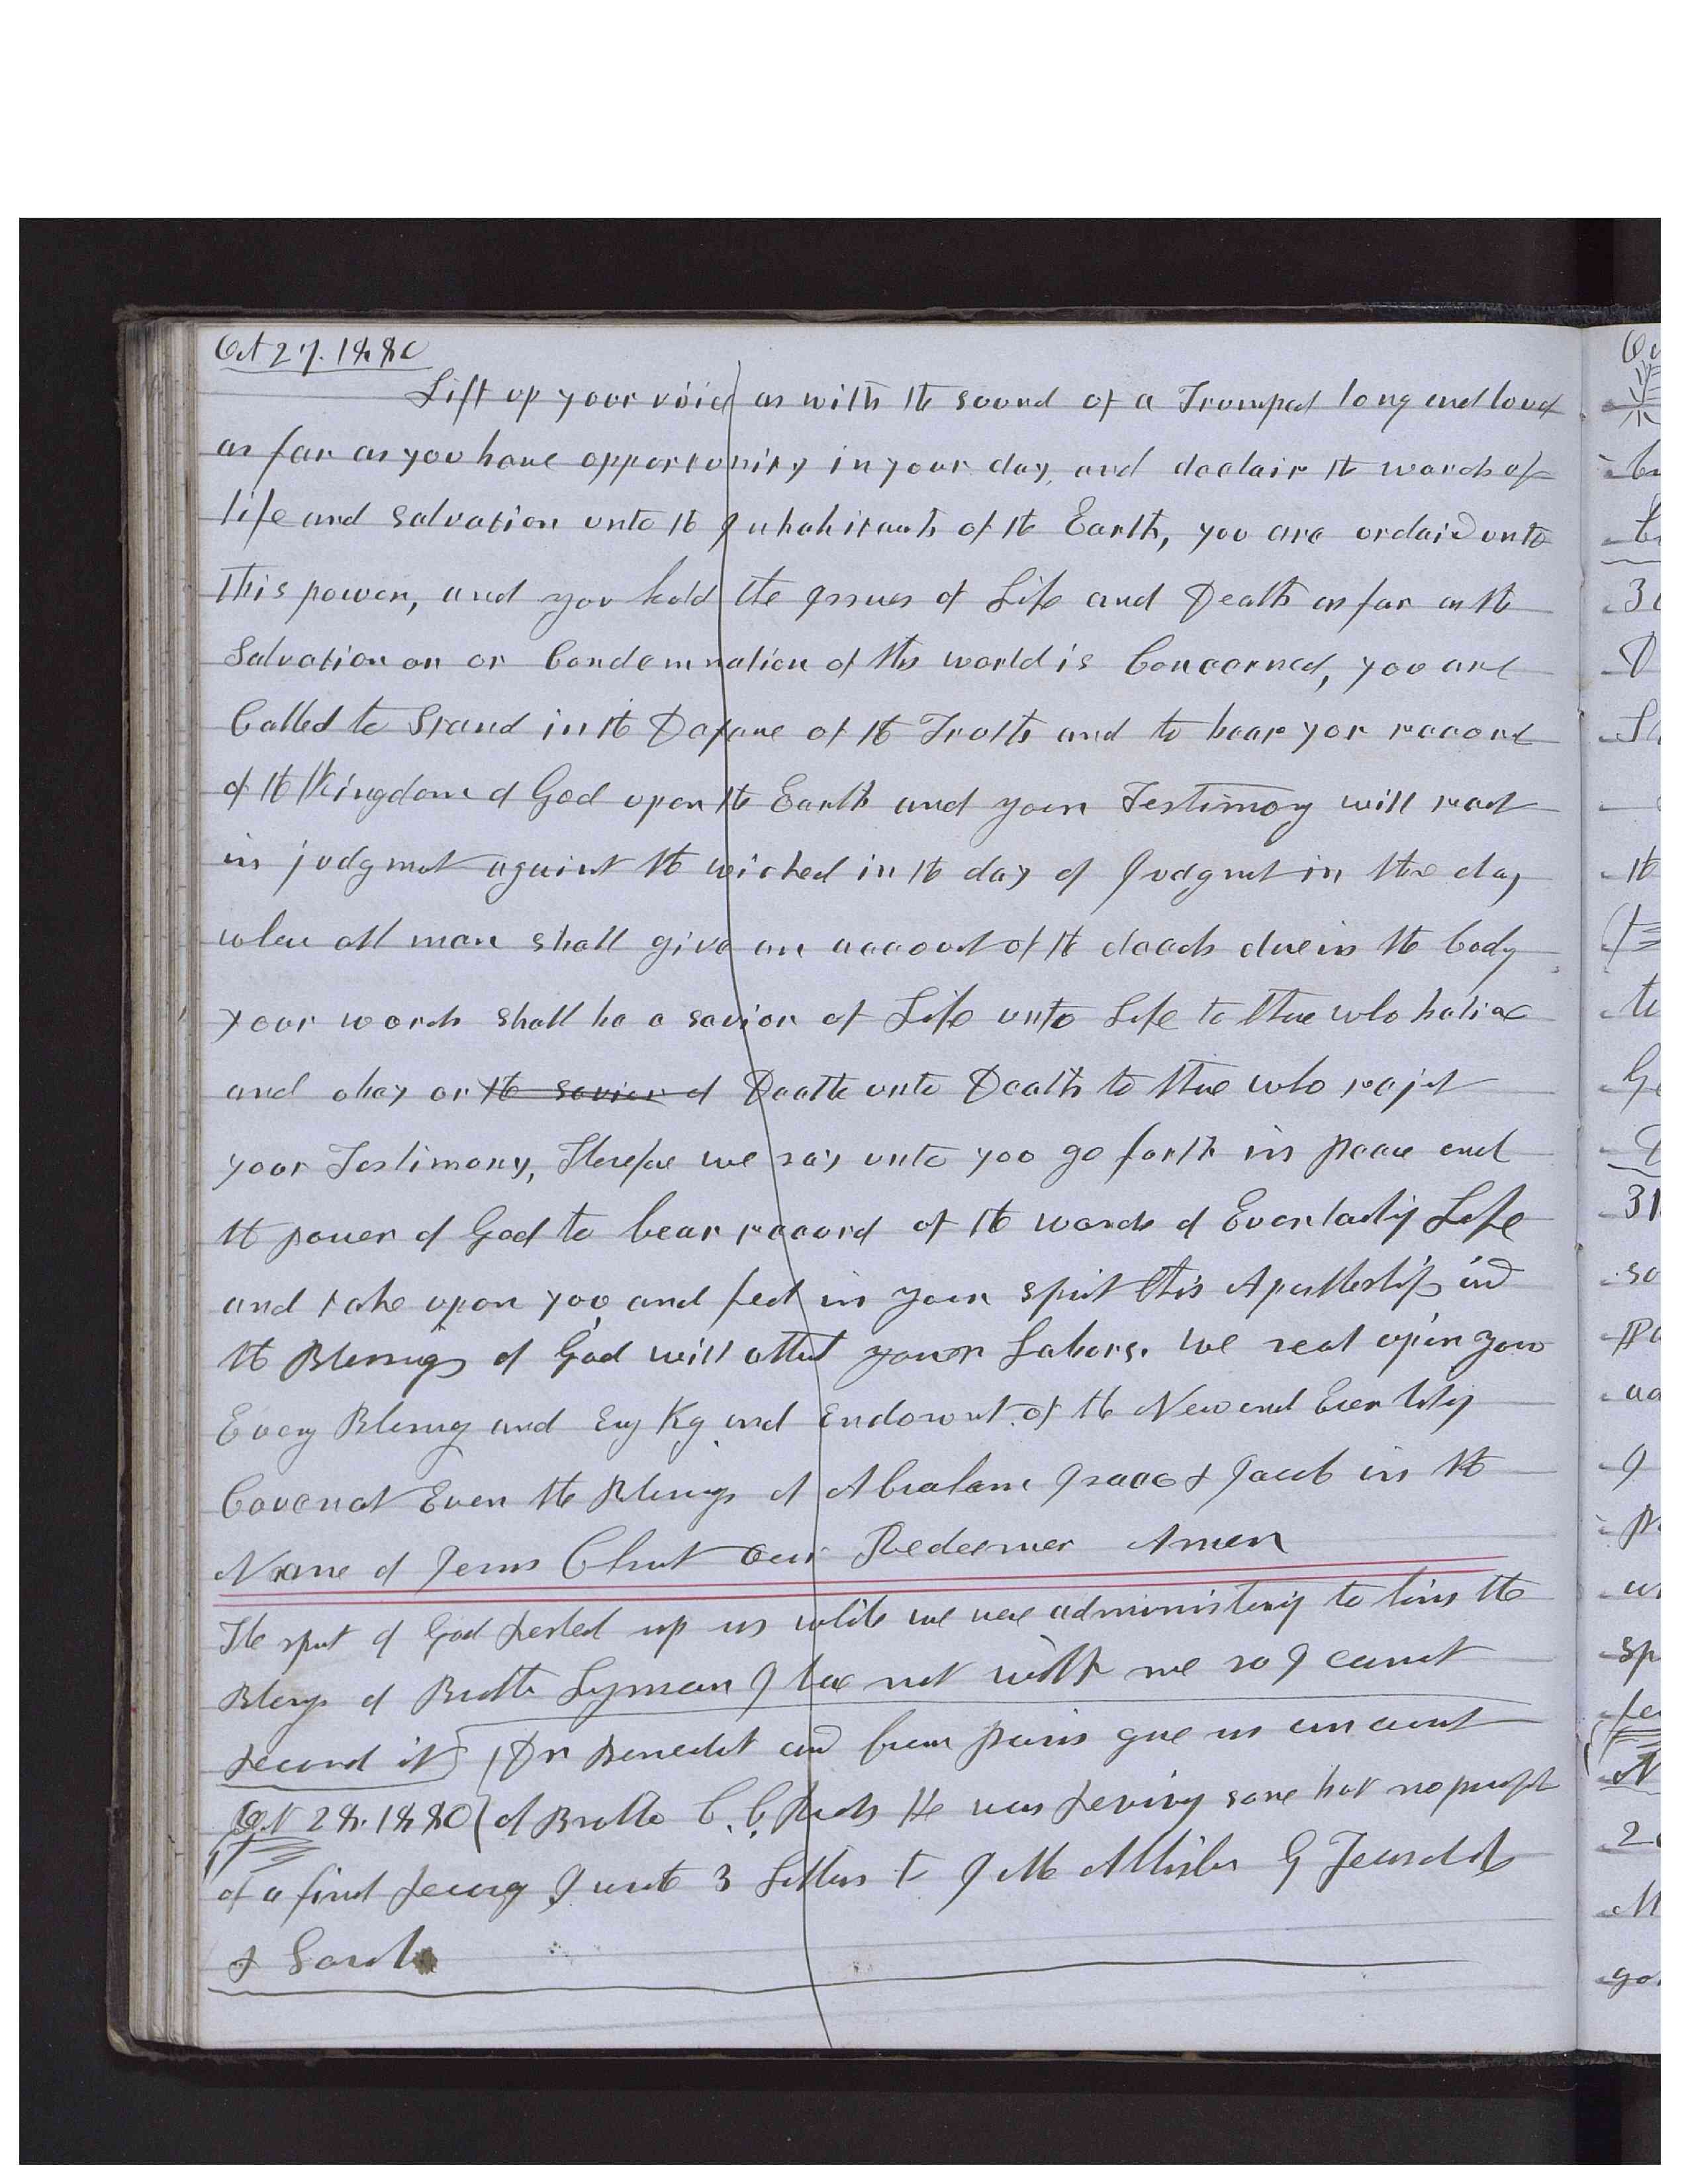 Oct 27. 1880
Lift up your voice as with the sound of a Trumpet long and loud
as far as you have opportunity in your day, and declair the words of
life and salvation unto the Inhabitants of the Earth, you are ordaid unto
this power, and you hold the Issues of Life and Death as far as the
Salvation on or Condemnation of this world is Concerned, you are
Called to Stand in the Defene of the Truth and to bear yor record
of the Kingdom of God upon the Earth and your Testimony will rest
in judgmet against the wicked in the day of Judgmt in the day
when all men shall give an account of the deeds done in the body
your words shall be a savior of Life unto Life to those who believe
and obey or the savior of Death unto Death to those who reject
your Testimony, Therefore we say unto you go forth in peace and
the power of God to bear record of the words of Everlasting Life
and take upon you and feel in your spirit this Apostleship and
the Blessings of God will attend your Labors. We seal upon you
Every Blessing and Evry Key and Endowmt of the New and Everlasting
Covenat Even the Blessings of Abraham Isaac & Jacob in the
Name of Jesus Christ our Redeemer Amen
The spirit of God rested up us while we were administering to him the
Blessings of Brother Lyman I have not with me so I cannot
record it Dr Benedict and from Paris gave us an account
Oct 28. 1880 of Brother C. C. Rich He was reviving some but no prospect
of a final recovery I wrote 3 Letters to
& Sarah